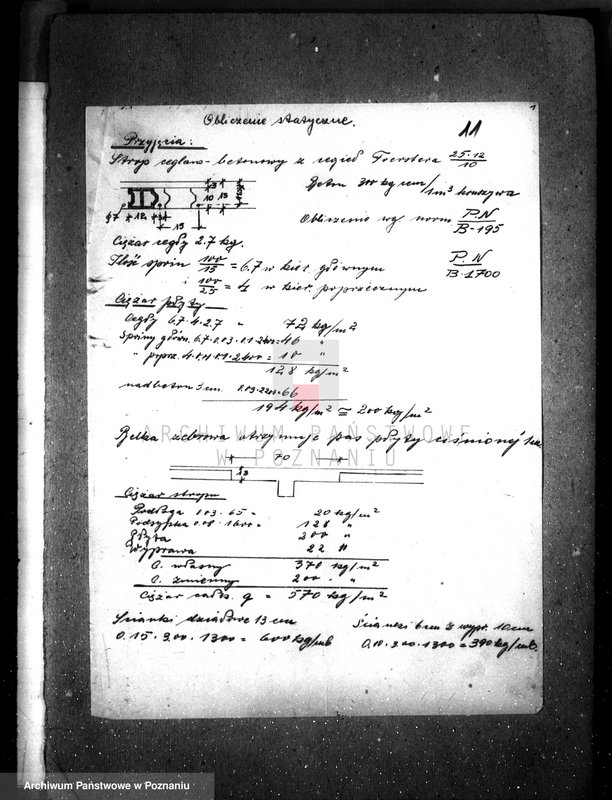 11
1
Obliczenie statyczne.
Przyjęcia:
Strop ceglano-betonowy z cegieł Foerstera 25·12/10
Beton 300 kg cem/1m³ kruszywa
3
10 13
12 3
15
Obliczenie wg. norm P.N/B-195
Ciężar cegły 2.7 kg.
P.N/B-1700
Ilość 100/15 = 6.7 w kier. głównym
100/25 = 4 w kier. poprzecznym
Ciężar płyty
Cegły 6.7·4·2.7 " 72 kg/m²
główn. 6.7·0.03·0.1· = 46 "
" poprz. 2400 = 10 "
128 kg/m²
nadbeton 3 cm. 0.03·2200·66
194 kg/m² ≅ 200 kg/m²
ARCHIWUM PAŃSTWOWE
W POZNANIU
Belka żebrowa otrzymuje pas płyty ciśnionej
70
Ciężar stropu
Podłoga 0.03·65 = 20 kg/m²
Podsypka 0.08·1600 = 128 "
Płyta 200 "
Wyprawa 22 "
C. własny 370 kg/m²
C. zmienny 200 · "
Ciężar całk. q = 570 kg/m²
Ścianki działowe 13 cm
0.15·3.00·1300 = 600 kg/mb
Ścianki 6 cm z wypr. 10 cm
0.10·3.00·1300 = 390 kg/mb.
Archiwum Państwowe w Poznaniu